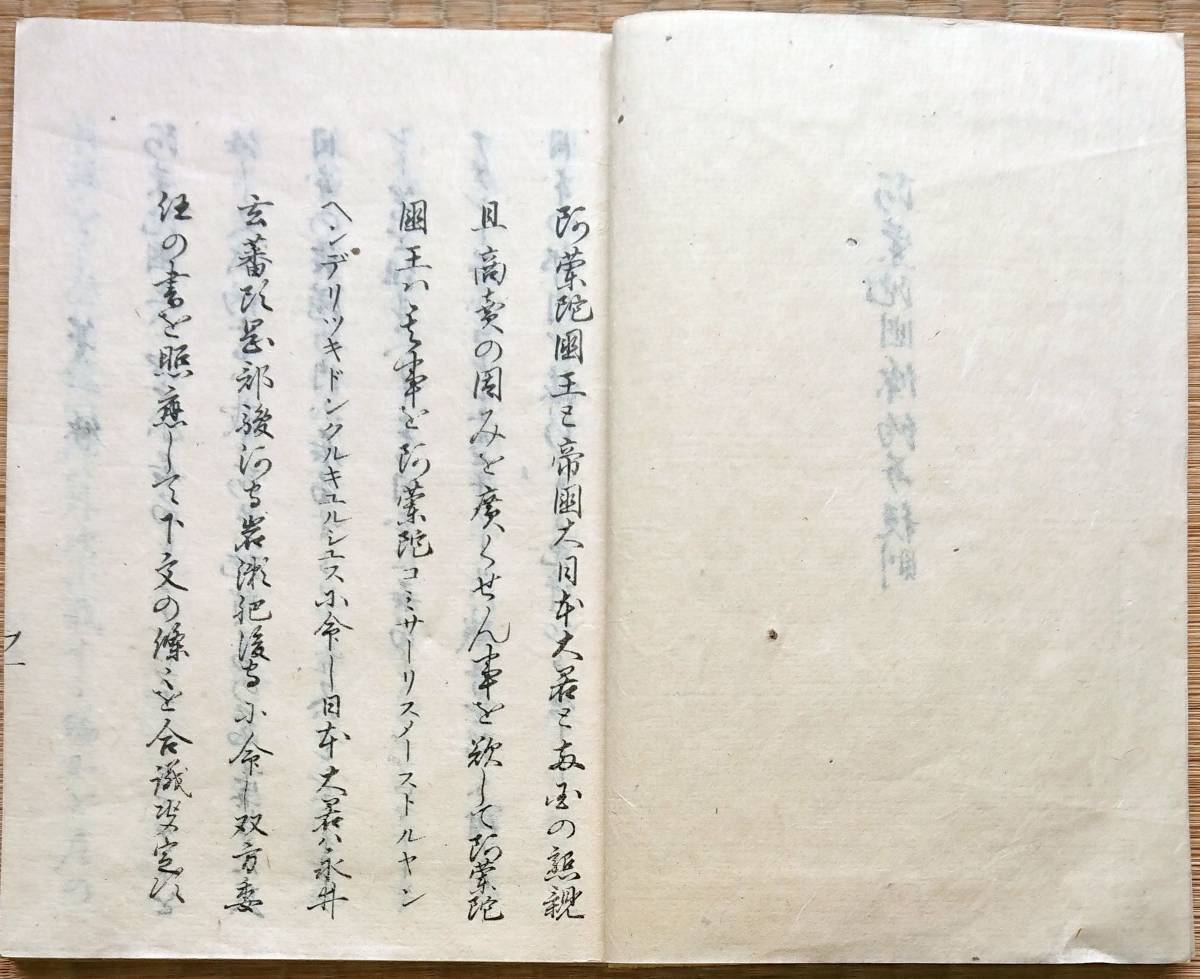 阿蘭陀國王と帝國大日本大君と両国の懇親
且商売の因みを廣くせん事を欲して阿蘭陀
國王ハ其事を阿蘭陀コミサーリスメーストルヤン
ヘンデリツキドンクルキユルシユス尓命し日本大君ハ永井
玄蕃頭岡部駿河守岩瀬肥後守尓命し双方委
任の書を照應して下文の條々を合議決定す